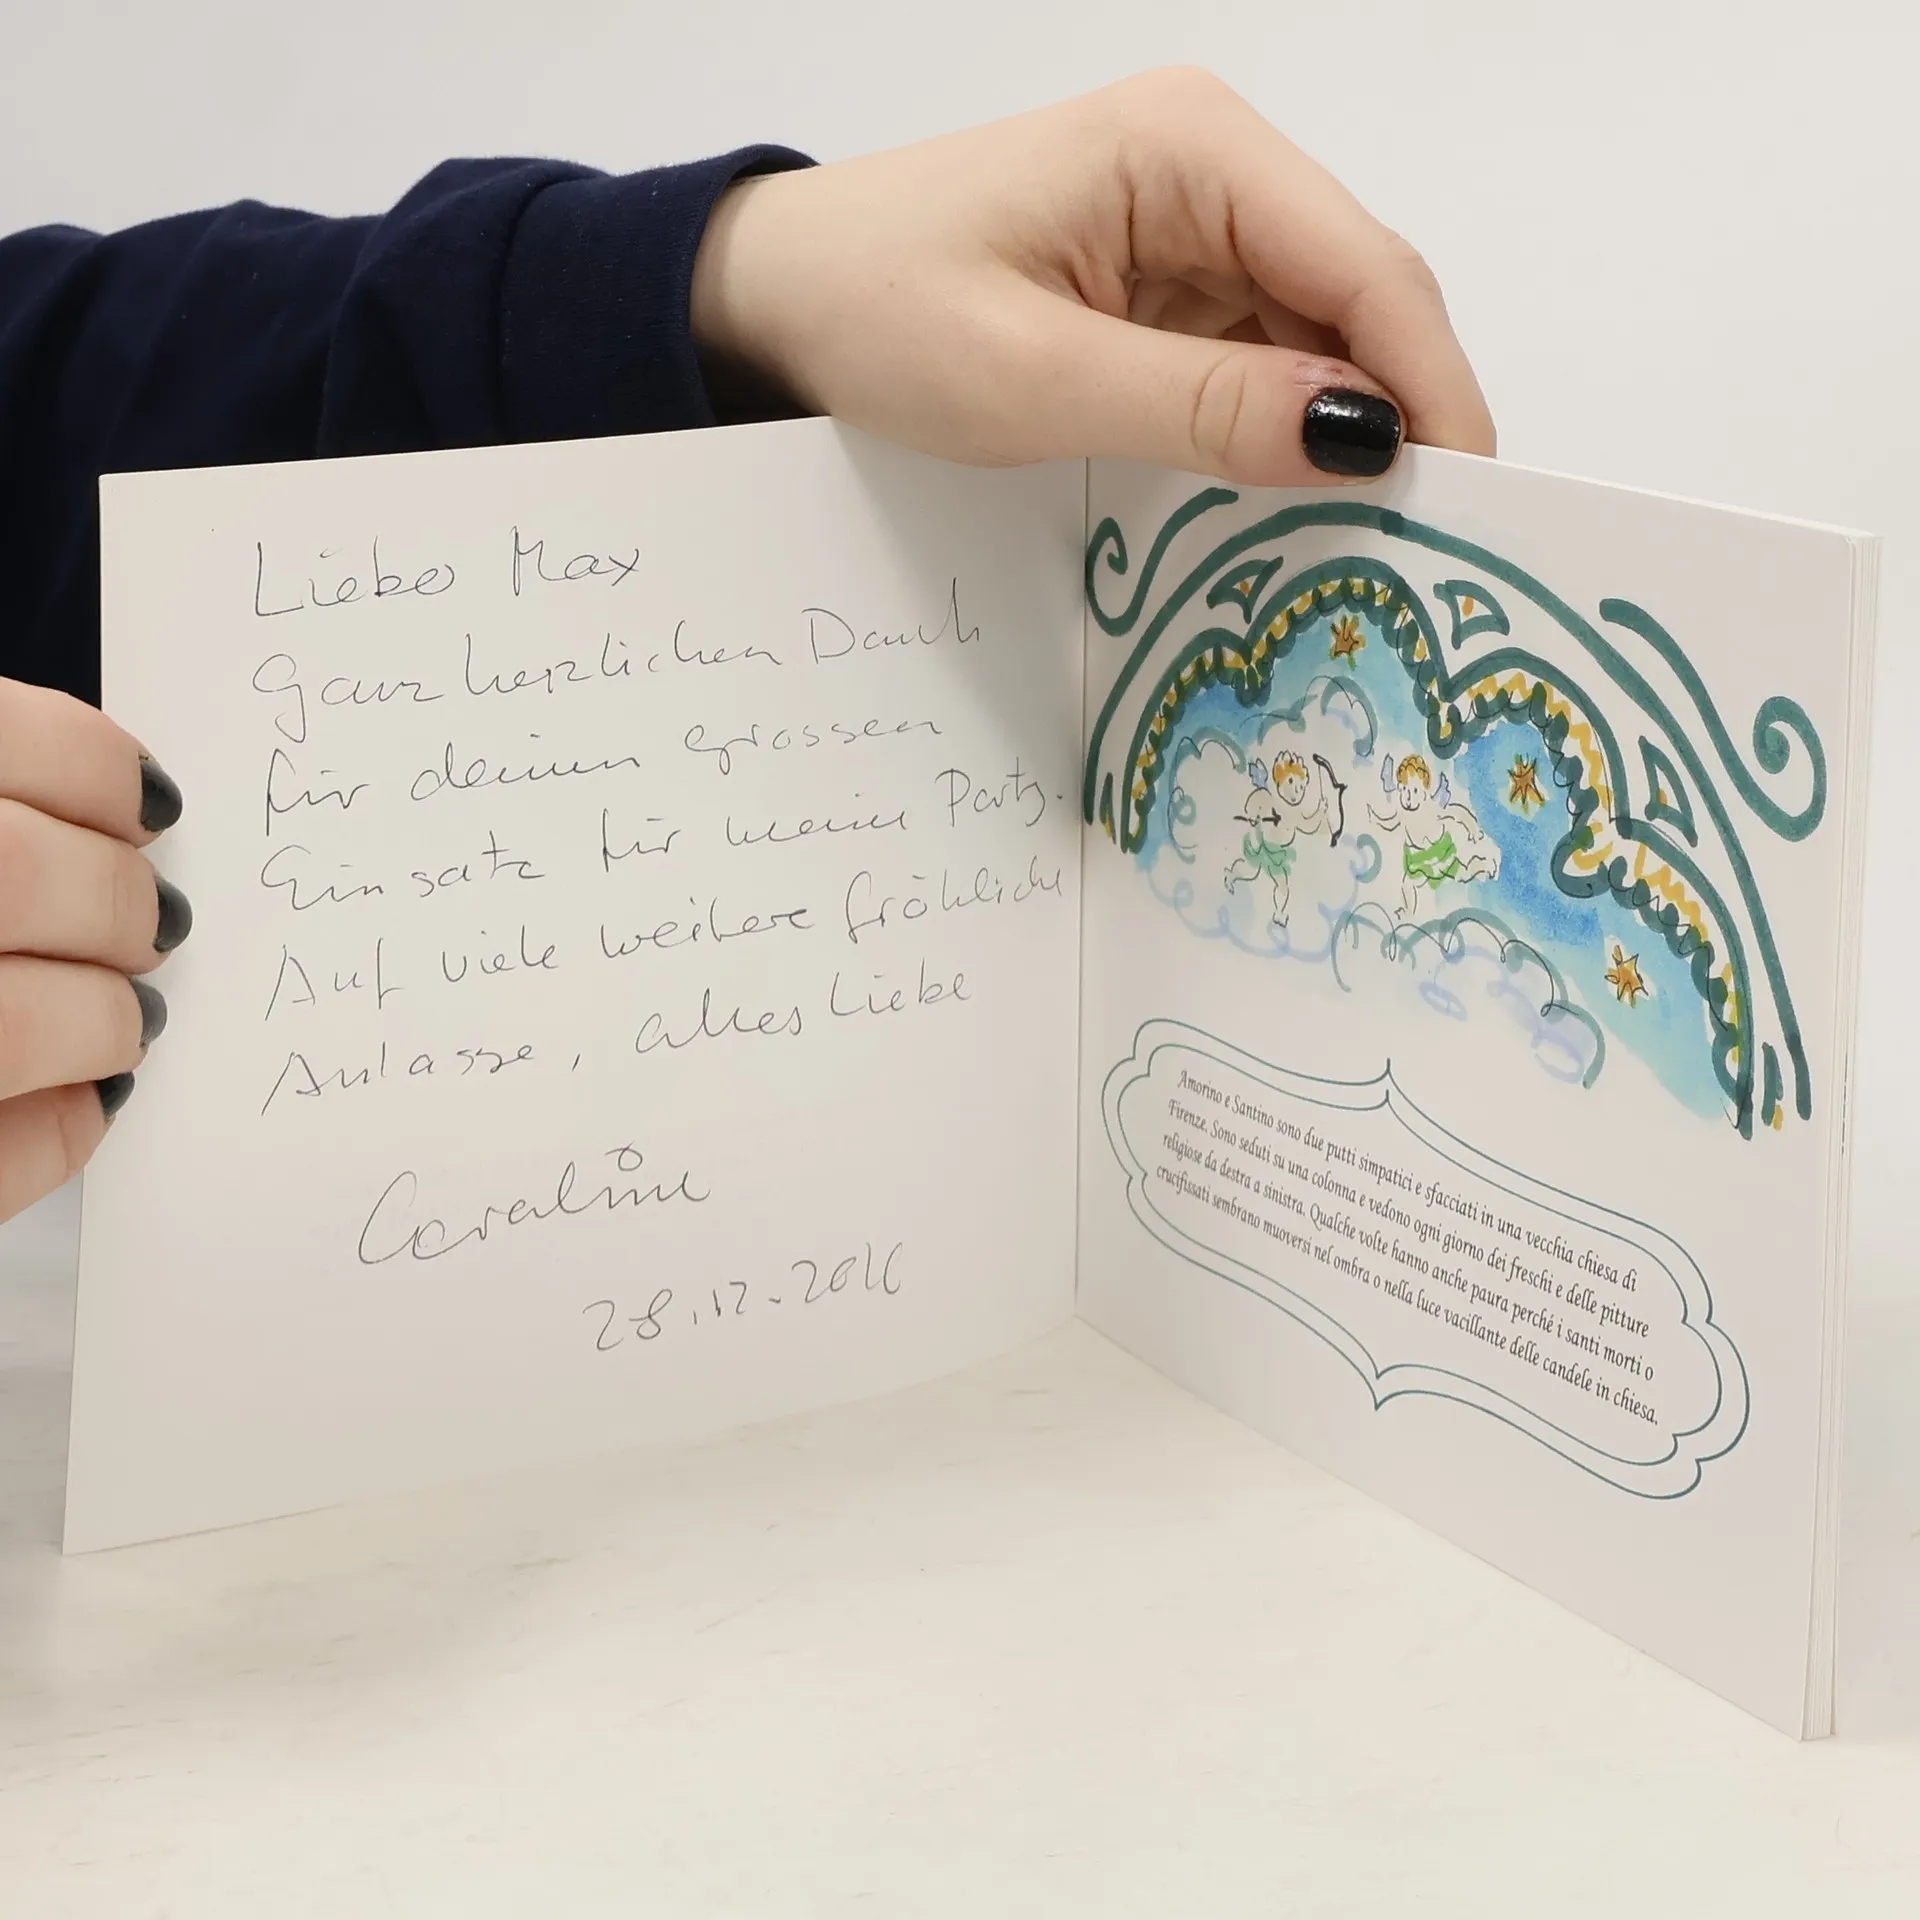 Lieber Max
Ganz herzlichen Dank
für deinen grossen
Einsatz für meine Party.
Auf viele weitere fröhliche
Anlässe, alles Liebe
Caroline
28.12.2016
Amorino e Santino sono due putti simpatici e sfacciati in una vecchia chiesa di
Firenze. Sono seduti su una colonna e vedono ogni giorno dei freschi e delle pitture
religiose da destra a sinistra. Qualche volte hanno anche paura perché i santi morti o
crucifissati sembrano muoversi nel ombra o nella luce vacillante delle candele in chiesa.